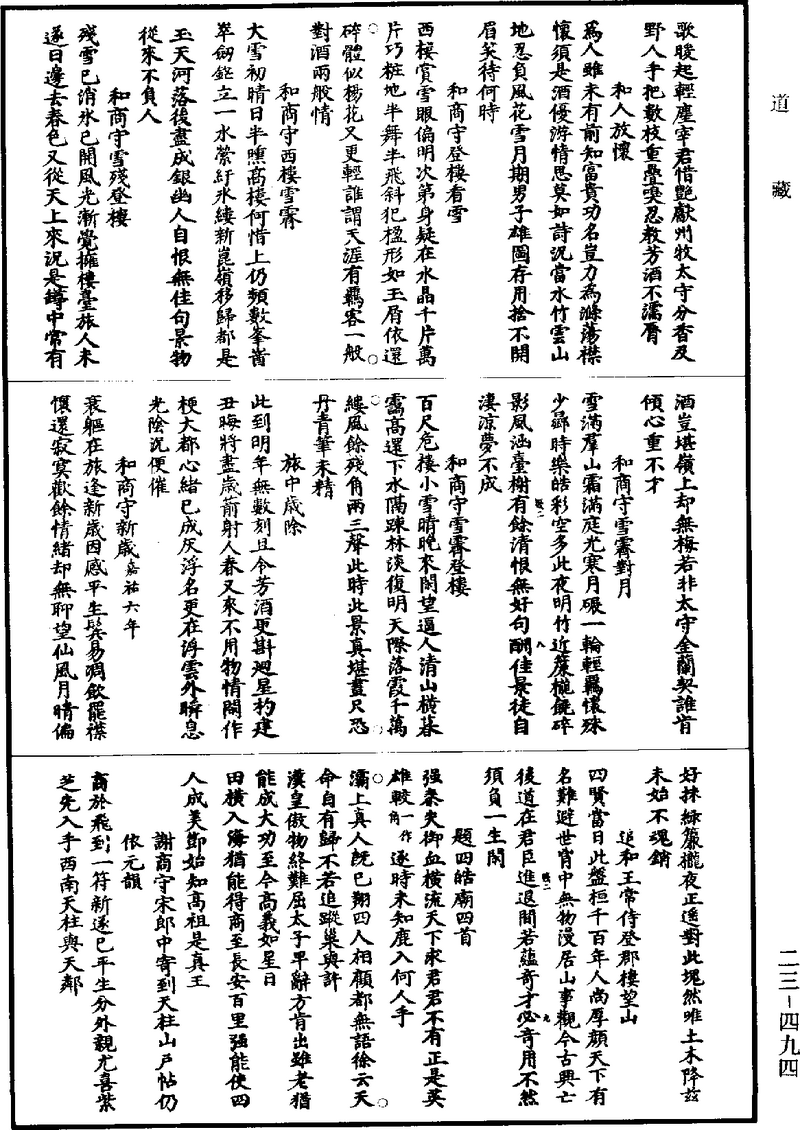 道藏
歌暖起輕塵宰君惜艷獻州牧太守分香及
野人手把數枝重疊嗅忍教芳酒不濡脣
和人放懷
為人雖未有前知富貴功名豈力為滌蕩襟
懷須是酒優游情思莫如詩況當水竹雲山
地忍負風花雪月期男子雄圖存用捨不開
眉笑待何時
和商守登樓看雪
西樓賞雪眼偏明次第身疑在水晶千片萬
片巧粧地半舞半飛斜犯楹形如玉屑依還
碎體似楊花又更輕誰謂天涯有羈客一般
對酒兩般情
和商守西樓雪霽
大雪初晴日半曛高樓何惜上仍頻數峯崷
崒劒鋩立一水縈紆氷縷新崑嶺移歸都是
玉天河落後盡成銀幽人自恨無佳句景物
從來不負人
和商守雪殘登樓
殘雪已消氷已開風光漸覺擁樓臺旅人未
遂日邊去春色又從天上來況是罇中常有
酒豈堪嶺上却無梅若非太守金蘭契誰肯
傾心重不才
和商守雪霽對月
雪滿羣山霜滿庭光寒月碾一輪輕羈懷殊
少尋時樂皓彩空多此夜明竹近簾櫳饒碎
影風涵臺榭有餘清恨無好句酬佳景徒自
淒涼夢不成
和商守雪霽登樓
百尺危樓小雪晴晚來閑望逼人清山橫暮
靄高還下水隔踈林淡復明天際落霞千萬
縷風餘殘角兩三聲此時此景真堪畫只恐
丹青筆未精
旅中歲除
此到明年無數刻且令芳酒更斟迴星杓建
丑晦將盡歲箭射人春又來不用物情閑作
梗大都心緒已成灰浮名更在浮雲外瞬息
光陰沉便催
和商守新歲嘉祐六年
衰軀在旅逢新歲因感平生鬢易凋飲罷襟
懷還寂寞歡餘情緒却無聊望仙風月晴偏
好抹綠簾櫳夜正遙對此塊然唯土木降茲
未始不魂銷
追和王常侍登郡樓望山
四賢當日此盤桓千百年人尚厚顏天下有
名難避世胷中無物漫居山事觀今古興亡
後道在君臣進退間若蘊奇才必奇用不然
須負一生閑
題四皓廟四首
强秦失御血橫流天下求君君不有正是英
雄較一作角逐時未知鹿入何人手
灞上真人旣已翔四人相顧都無語徐云天
命自有歸不若追蹤巢與許
漢皇傲物終難屈太子卑辭方肯出雖老猶
能成大功至今高義如星日
田橫入海猶能得商至長安百里强能使四
人成美鄭始知高祖是真王
謝商守宋郎中寄到天柱山戶帖仍
依元韻
商於飛到一符新遂已平生分外親尤喜紫
芝先入手西南天柱與天鄰
二三-四九四